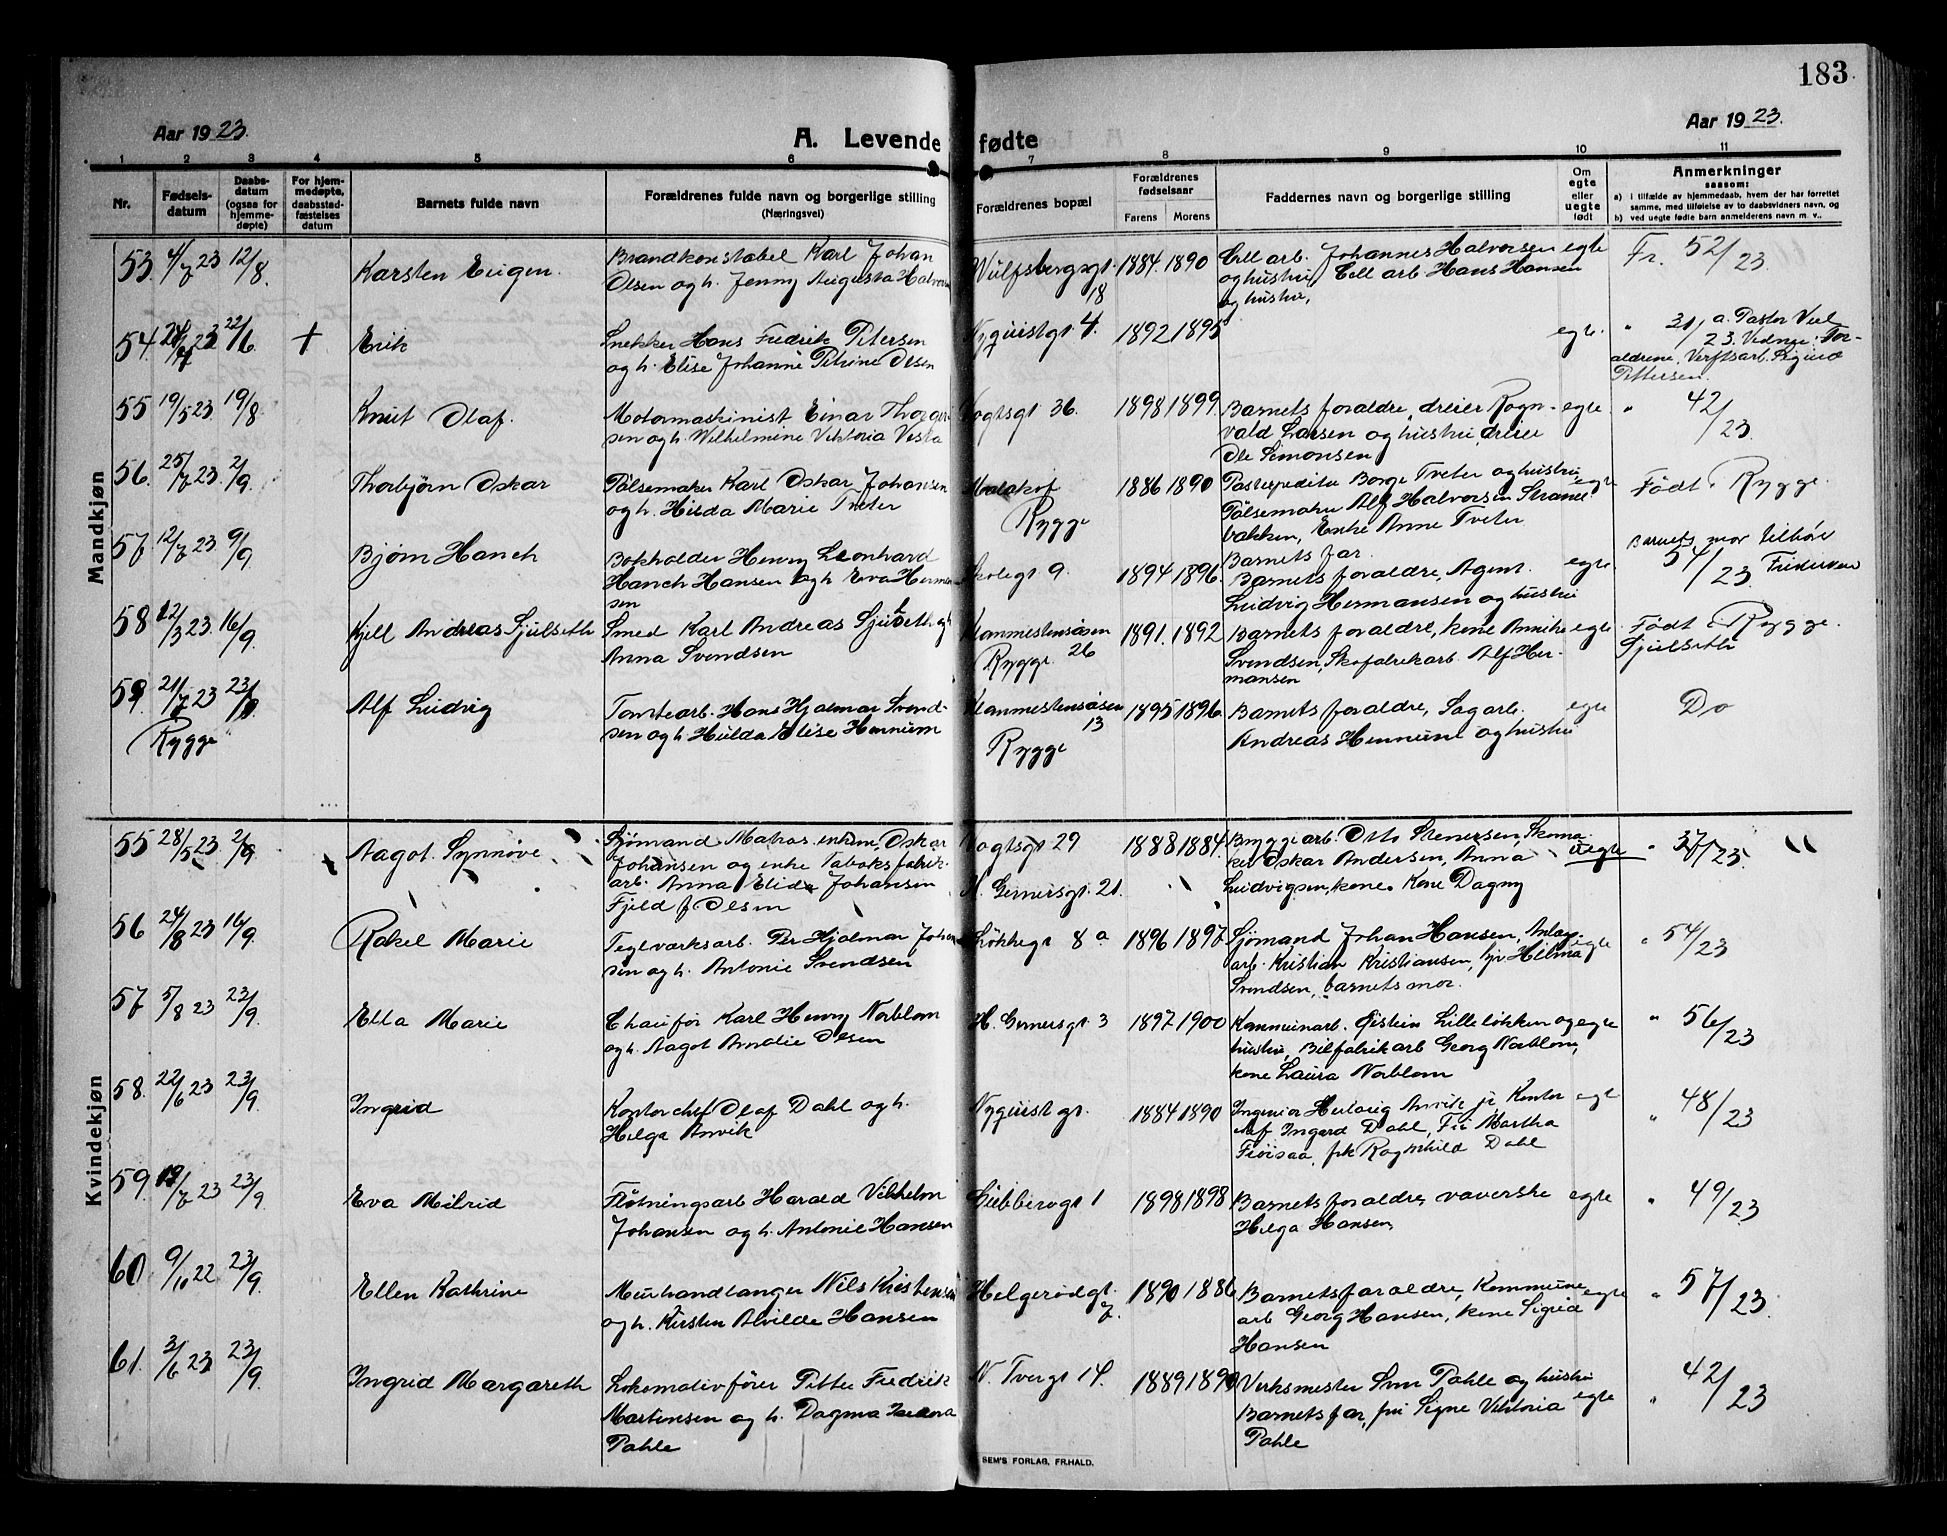 183
Aar 1923.
A. Levende fødte
Aar 1923.
1 2 3 4 5 6 7 8 9 10 11
Nr.
Fødsels-
datum
Daabs-
datum
(ogsaa for
hjemme-
døpte)
For hjem-
medøpte,
daabsstad-
fæstelses
datum
Barnets fulde navn
Forældrenes fulde navn og borgerlige stilling
(Næringsvei)
Forældrenes bopæl
Forældrenes
fødselsaar
Farens Morens
Faddernes navn og borgerlige stilling
Om
egte
eller
uegte
født
Anmerkninger
saasom:
a) i tilfælde av hjemmedaab, hvem der har forrettet
samme, med tilføielse av to daabsvidners navn, og
b) ved uegte fødte barn anmelderens navn m. v..
Mandkjøn
53 4/7 23 12/8. Karsten Eugen.
Brandkonstabel Karl Johan
Olsen og h. Jenny Augusta Halvorsen
Wulfsbergsgt.
18
1884. 1890
Cell arb. Johannes Halvorsen
og hustru, Cell arb. Hans Hansen
og hustru,
egte
Fr. 52/23.
54. 23 22/6 + Erik
Snekker Hans Fredrik Petersen
og h. Elise Johanne Petrine Olsen
Nyquistgt. 4. 1892 1895
egte.
" 31/ a. Pastor
23. Vidner: For-
ældrene, Verftsarb. Sigurd
Pettersen.
55 19/5 23 19/8 Knut Olaf.
Motormaskinist Einar Thorger
sen og h. Wilhelmine Viktoria Vesta
Vogtsgt 36. 1898 1899
Barnets forældre, dreier Ragn-
vald Larsen og hustru, dreier
Ole Simonsen
egte
" 42/23.
56. 25/7 23 2/9. Thorbjørn Oskar
Pølsemaker Karl Oskar Johansen
og h. Hilda Marie Tveter
Malakof
Rygge
1886 1890
Borge Tveter og hustru,
Pølsemaker Alf Halvorsen
bakken, Enke Anne Tveter
egte
Født i Rygge.
57 12/7 23. 9/9 Bjørn Hanch
Bokholder Henry Leonhard
Hanch Hansen og h. Eva Herman
sen
Skolegt 9. 1894 1896.
Barnets far.
Barnets forældre, Agent
Ludvig Hermansen og hustru
egte
Barnets mor tilhør
54/23
58 12/3 23. 16/9. Kjell Andreas Sjulseth
Smed Karl Andreas Sjulseth og h
Anna Svendsen
Klommestensåsen
Rygge 26
1891. 1892
Barnets forældre, kone Annike
Svendsen, Skofabrikarb. Alf Her-
mansen
egte
Født i Rygge.
Sjulseth
59. 21/7 23 23/9. Alf Ludvig
Rygge
Tomtearb. Hans Hjalmar Svend-
sen og h. Hulda Elise Hennum
Klommestensåsen
13
Rygge
1895 1896.
Barnets forældre, Sagarb.
Andreas Hennum og hustru
egte
Do
Kvindekjøn
55 28/5 23 2/9 Aagot Synnøve
Sjømand Matros, enkem, Oskar
Johansen og enke Tobaksfabrik-
arb. Anna Elida Johansen
Fjeld f. Olsen
Vogtsgt 29
H. Gernersgt. 21.
1888 1884.
Bryggearb. Otto Stenersen, Skoma
ker Oskar Andersen, Anna
Ludvigsen, kone. Kone Dagny
uegte
" 37/23.
56 24/8 23 16/9. Rakel Marie
Teglverksarb. Per Hjalmar Johan
sen og h. Antonie Svendsen
Løkkegt 8a 1896 1897
Sjømand Johan Hansen, Anlæg.
arb. Kristian Kristiansen, frk Hilma
Svendsen, barnets mor.
egte
" 54/23
57 5/8 23 23/9. Ella Marie
Chaufør Karl Henry Norblom
og h. Aagot Amalie Olsen
H. Gernersgt 3 1897 1900
Kommunearb. Øistein Lilleløkken og
hustru, Bilfabrikarb Georg Norblom,
kone Laura Norblom
egte
" 56/23
58. 22/6 23 23/9. Ingrid
Kontorchef Olaf Dahl og h.
Helga Anvik
Nyquistgt. 1884 1890
Ingeniør Anvik jr Kontor
chef Ingard Dahl, Fru Martha
frk Ragnhild Dahl
egte
" 48/23
59. 19/7 23 23/9. Eva Milrid
Fløtningsarb Harald Vilhelm
Johansen og h. Antonie Hansen
Lübbersgt 1 1898 1898
Barnets forældre, væverske
Helga Hansen,
egte
" 49/23
60 9/11 22 23/9. Ellen Kathrine
Murhandlanger Nils Kristensen
og h. Kirsten Alvilde Hansen
Helgerødgt.
7.
1890 1886
Barnets forældre, Kommune
arb Georg Hansen, kone Sigrid
Hansen
egte
" 57/23.
61. 3/6 23 23/9. Ingrid Margareth
Lokomotivfører Petter Fredrik
Martensen og h. Dagma
Pahle
N. Tvergt 14. 1889 1890
Verksmester Pahle og hustru
Barnets far, fru Signe Viktoria
Pahle
egte
" 42/23
SEM'S FORLAG, FR.HALD.